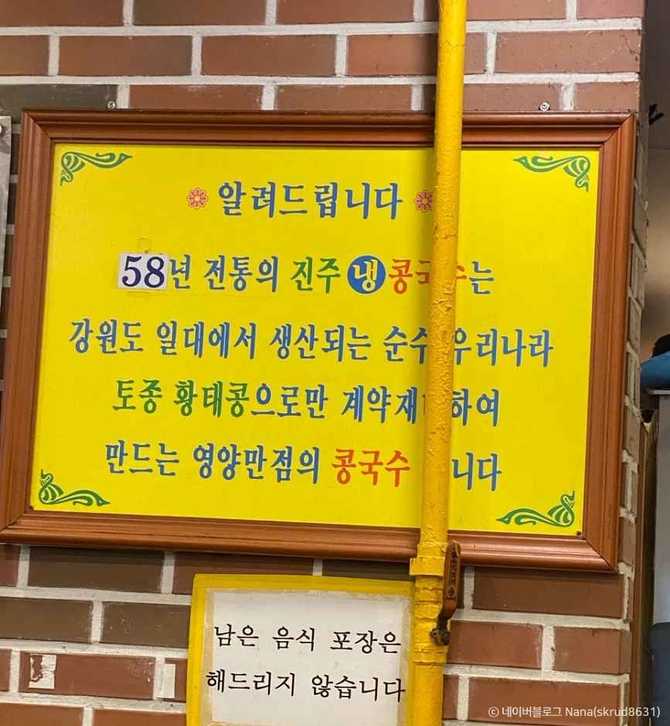 알려드립니다
58년 전통의 진주 냉콩국수는
강원도 일대에서 생산되는 순수 우리나라
토종 황태콩으로만 계약재 하여
만드는 영양만점의 콩국수 니다
남은 음식 포장은
해드리지 않습니다
© 네이버블로그 Nana(skrud8631)